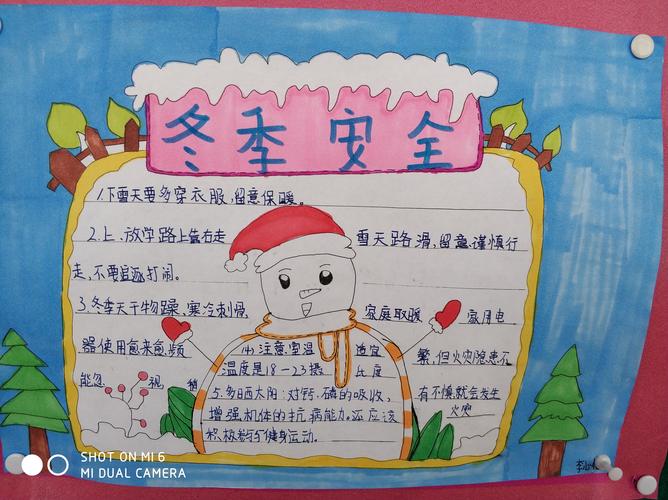 冬季安全
1.下雪天要多穿衣服,留意保暖。
2.上、放学路上靠右走 雪天路滑,留意谨慎行
走,不要追逐打闹。
3.冬季天干物躁,寒冷刺骨, 家庭取暖 家用电
器使用愈来愈频 繁,但火灾隐患不
能忽 视,稍 有不慎就会发生
火灾
(4)注意室温 适宜
温度是18-23摄 氏度
5.多晒太阳:对钙、磷的吸收,
增强机体的抗病能力。还应该
积极参与健身运动。
SHOT ON MI 6
MI DUAL CAMERA